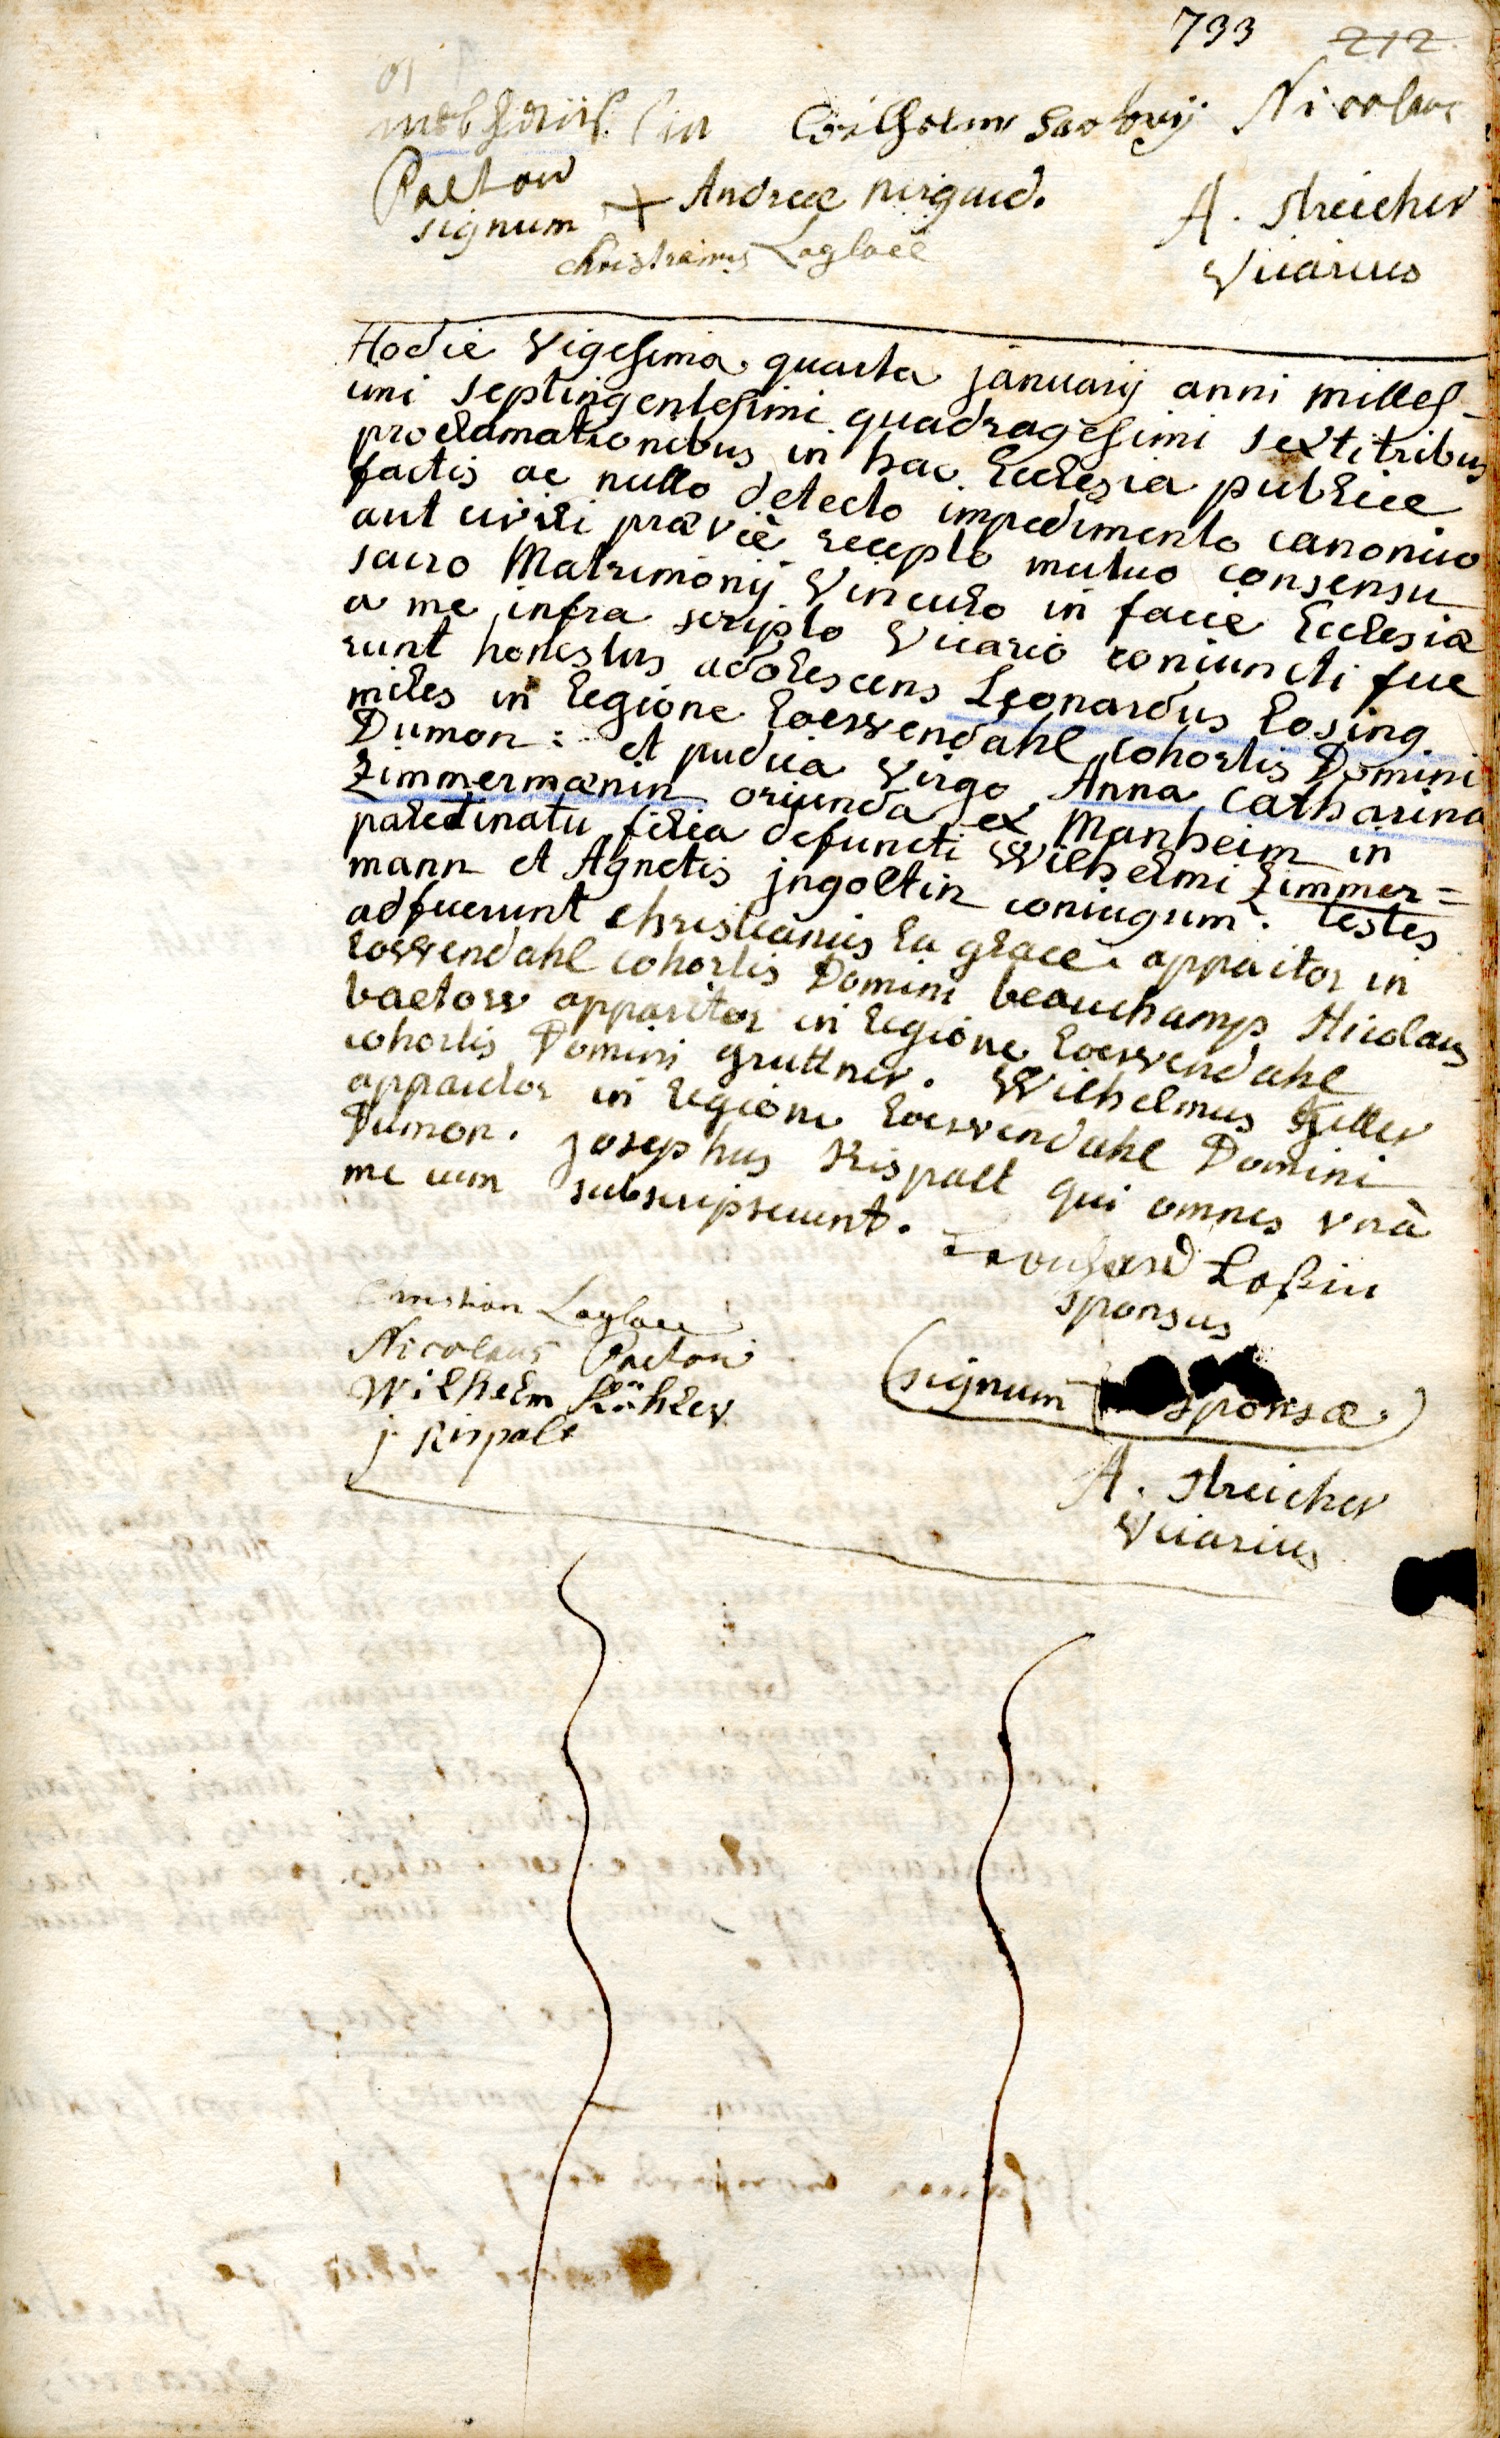 733 212
Wilhelm Nicolaus
Paetow
signum + Andreæ
A. Streicher
christianus Laglace
Vicarius
Hodie Vigesima quarta januarij anni milles-
imi septingentesimi quadragesimi sexti tribus
proclamationibus in hac Ecclesia publice
factis ac nullo detecto impedimento canonico
aut civili prævie recepto mutuo consensu
sacro Matrimonij Vinculo in facie Ecclesiæ
a me infra scripto Vicario coniuncti fue
runt honestus adolescens Leonardus Losing
miles in legione Loewendahl cohortis Domini
Dumon: et pudica virgo Anna Catharina
Zimmermænin oriunda ex Manheim in
paletinatu filia defuncti Wilhelmi Zimmer=
mann et Agnetis jngoltin coniugum. testes
adfuerunt christianus la glace appaitor in
Lowendahl cohortis Domini beauchamp Nicolaus
baetow apparitor in legione Loewendahl
cohortis Domini gruttner. Wilhelmus Keller
appaitor in legione Loewendahl Domini
Dumon. Josephus Rispalt qui omnes vnà
me cum subscripserunt.
Lossin
sponsus
Christian Laglace
Nicolaus Paetow
Wilhelm Köhler
j. Rispalt
(signum sponsæ)
A. Streicher
Vicarius